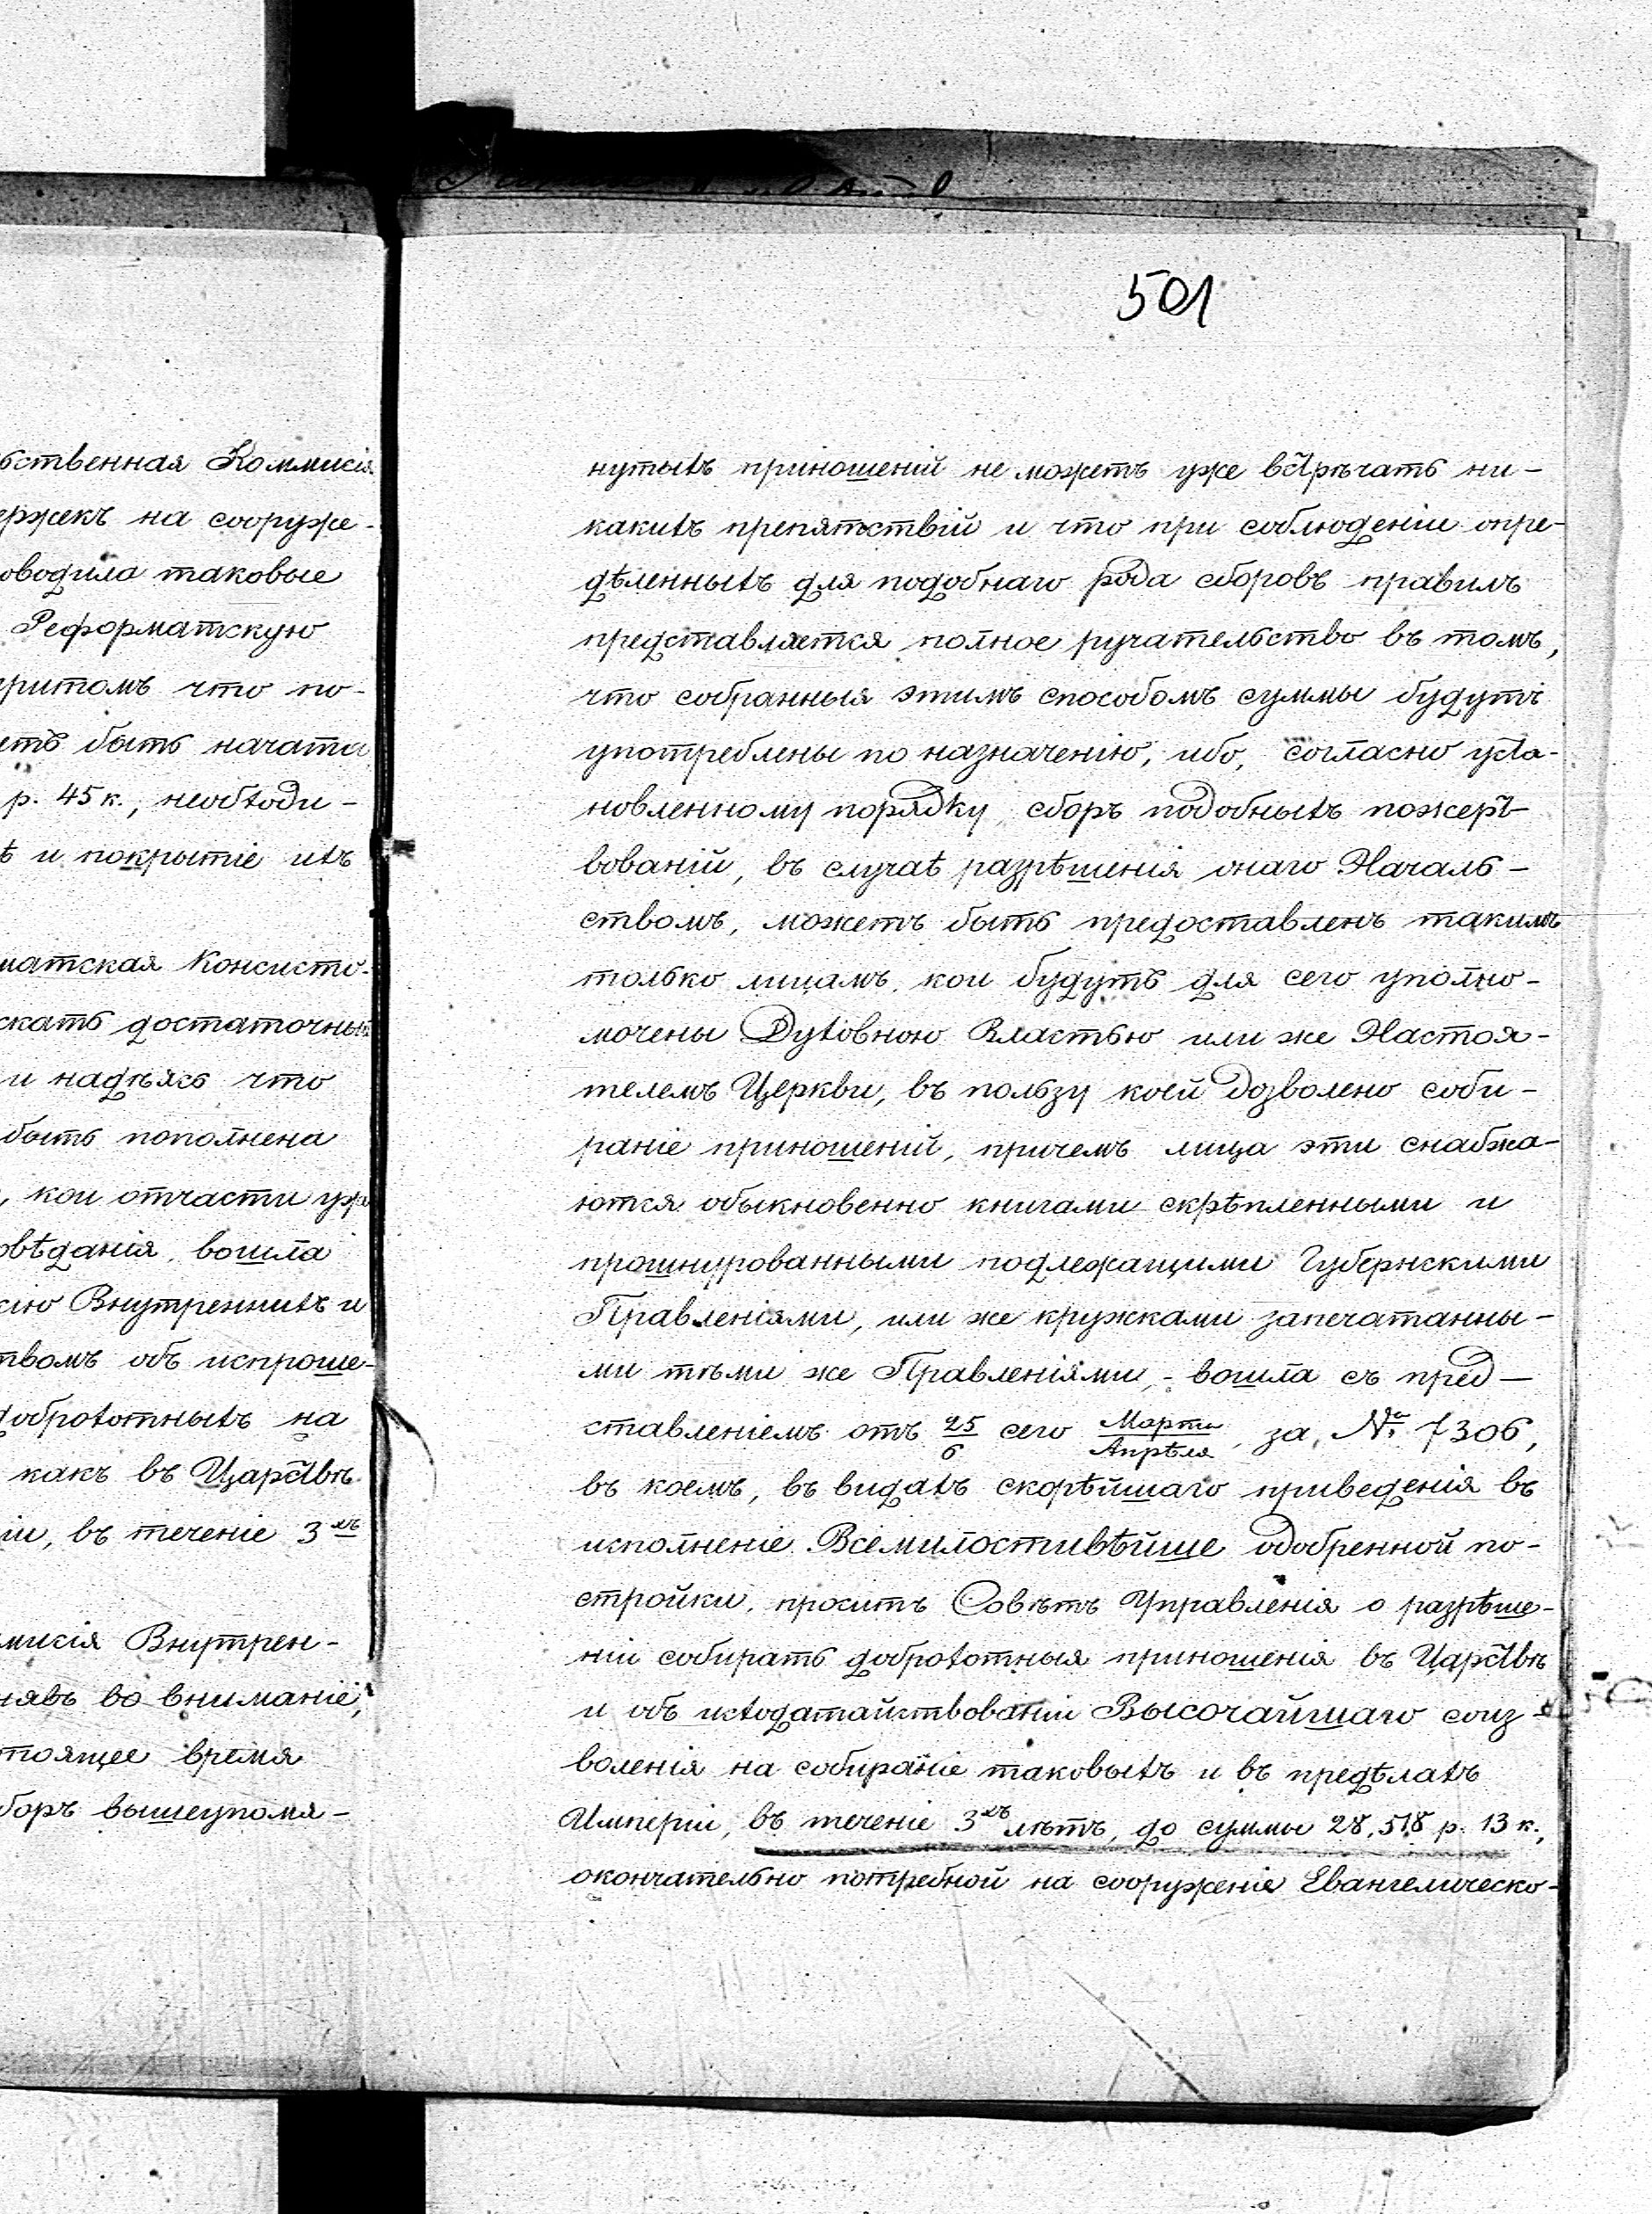 бственная Коммисія
ержекъ на сооруже-
оводила таковые
Реформатскую
притомъ что по-
етъ быть начата
р. 45 к., необходи-
ѣ и покрытіе ихъ
матская Консисто-
скать достаточный
и надѣясь что
быть пополнена
, кои отчасти уже
овѣданія, вошла
сію Внутреннихъ и
твомъ объ испроше-
доброхотныхъ на
какъ въ Царствѣ
іи, въ теченіе 3хъ
мисія Внутрен-
нявъ во вниманіе,
тоящее время
боръ вышеупомя-
501
нутыхъ приношеній не можетъ уже встрѣчать ни-
какихъ препятствій и что при соблюденіи опре-
дѣленныхъ для подобнаго рода сборовъ правилъ
представляется полное ручательство въ томъ,
что собранныя этимъ способомъ суммы будутъ
употреблены по назначенію, ибо, согласно уста-
новленному порядку, сборъ подобныхъ пожерт-
вованій, въ случаѣ разрѣшенія онаго Началь-
ствомъ, можетъ быть предоставленъ такимъ
только лицамъ, кои будутъ для сего уполно-
мочены Духовною Властью или же Настоя-
телемъ Церкви, въ пользу коей дозволено соби-
раніе приношеній, причемъ лица эти снабжа-
ются обыкновенно книгами скрѣпленными и
прошнурованными подлежащими Губернскими
Правленіями, или же кружками запечатанны-
ми тѣми же Правленіями, - вошла съ пред-
ставленіемъ отъ 25/6 сего Марта/Апрѣля, за № 7306,
въ коемъ, въ видахъ скорѣйшаго приведенія въ
исполненіе Всемилостивѣйше одобренной по-
стройки, проситъ Совѣтъ Управленія о разрѣше-
ніи собирать доброхотныя приношенія въ Царствѣ
и объ исходатайствованіи Высочайшаго соиз-
воленія на собираніе таковыхъ и въ предѣлахъ
Имперіи, въ теченіе 3хъ лѣтъ, до суммы 28,518 р. 13 к.,
окончательно потребной на сооруженіе Евангелическо-